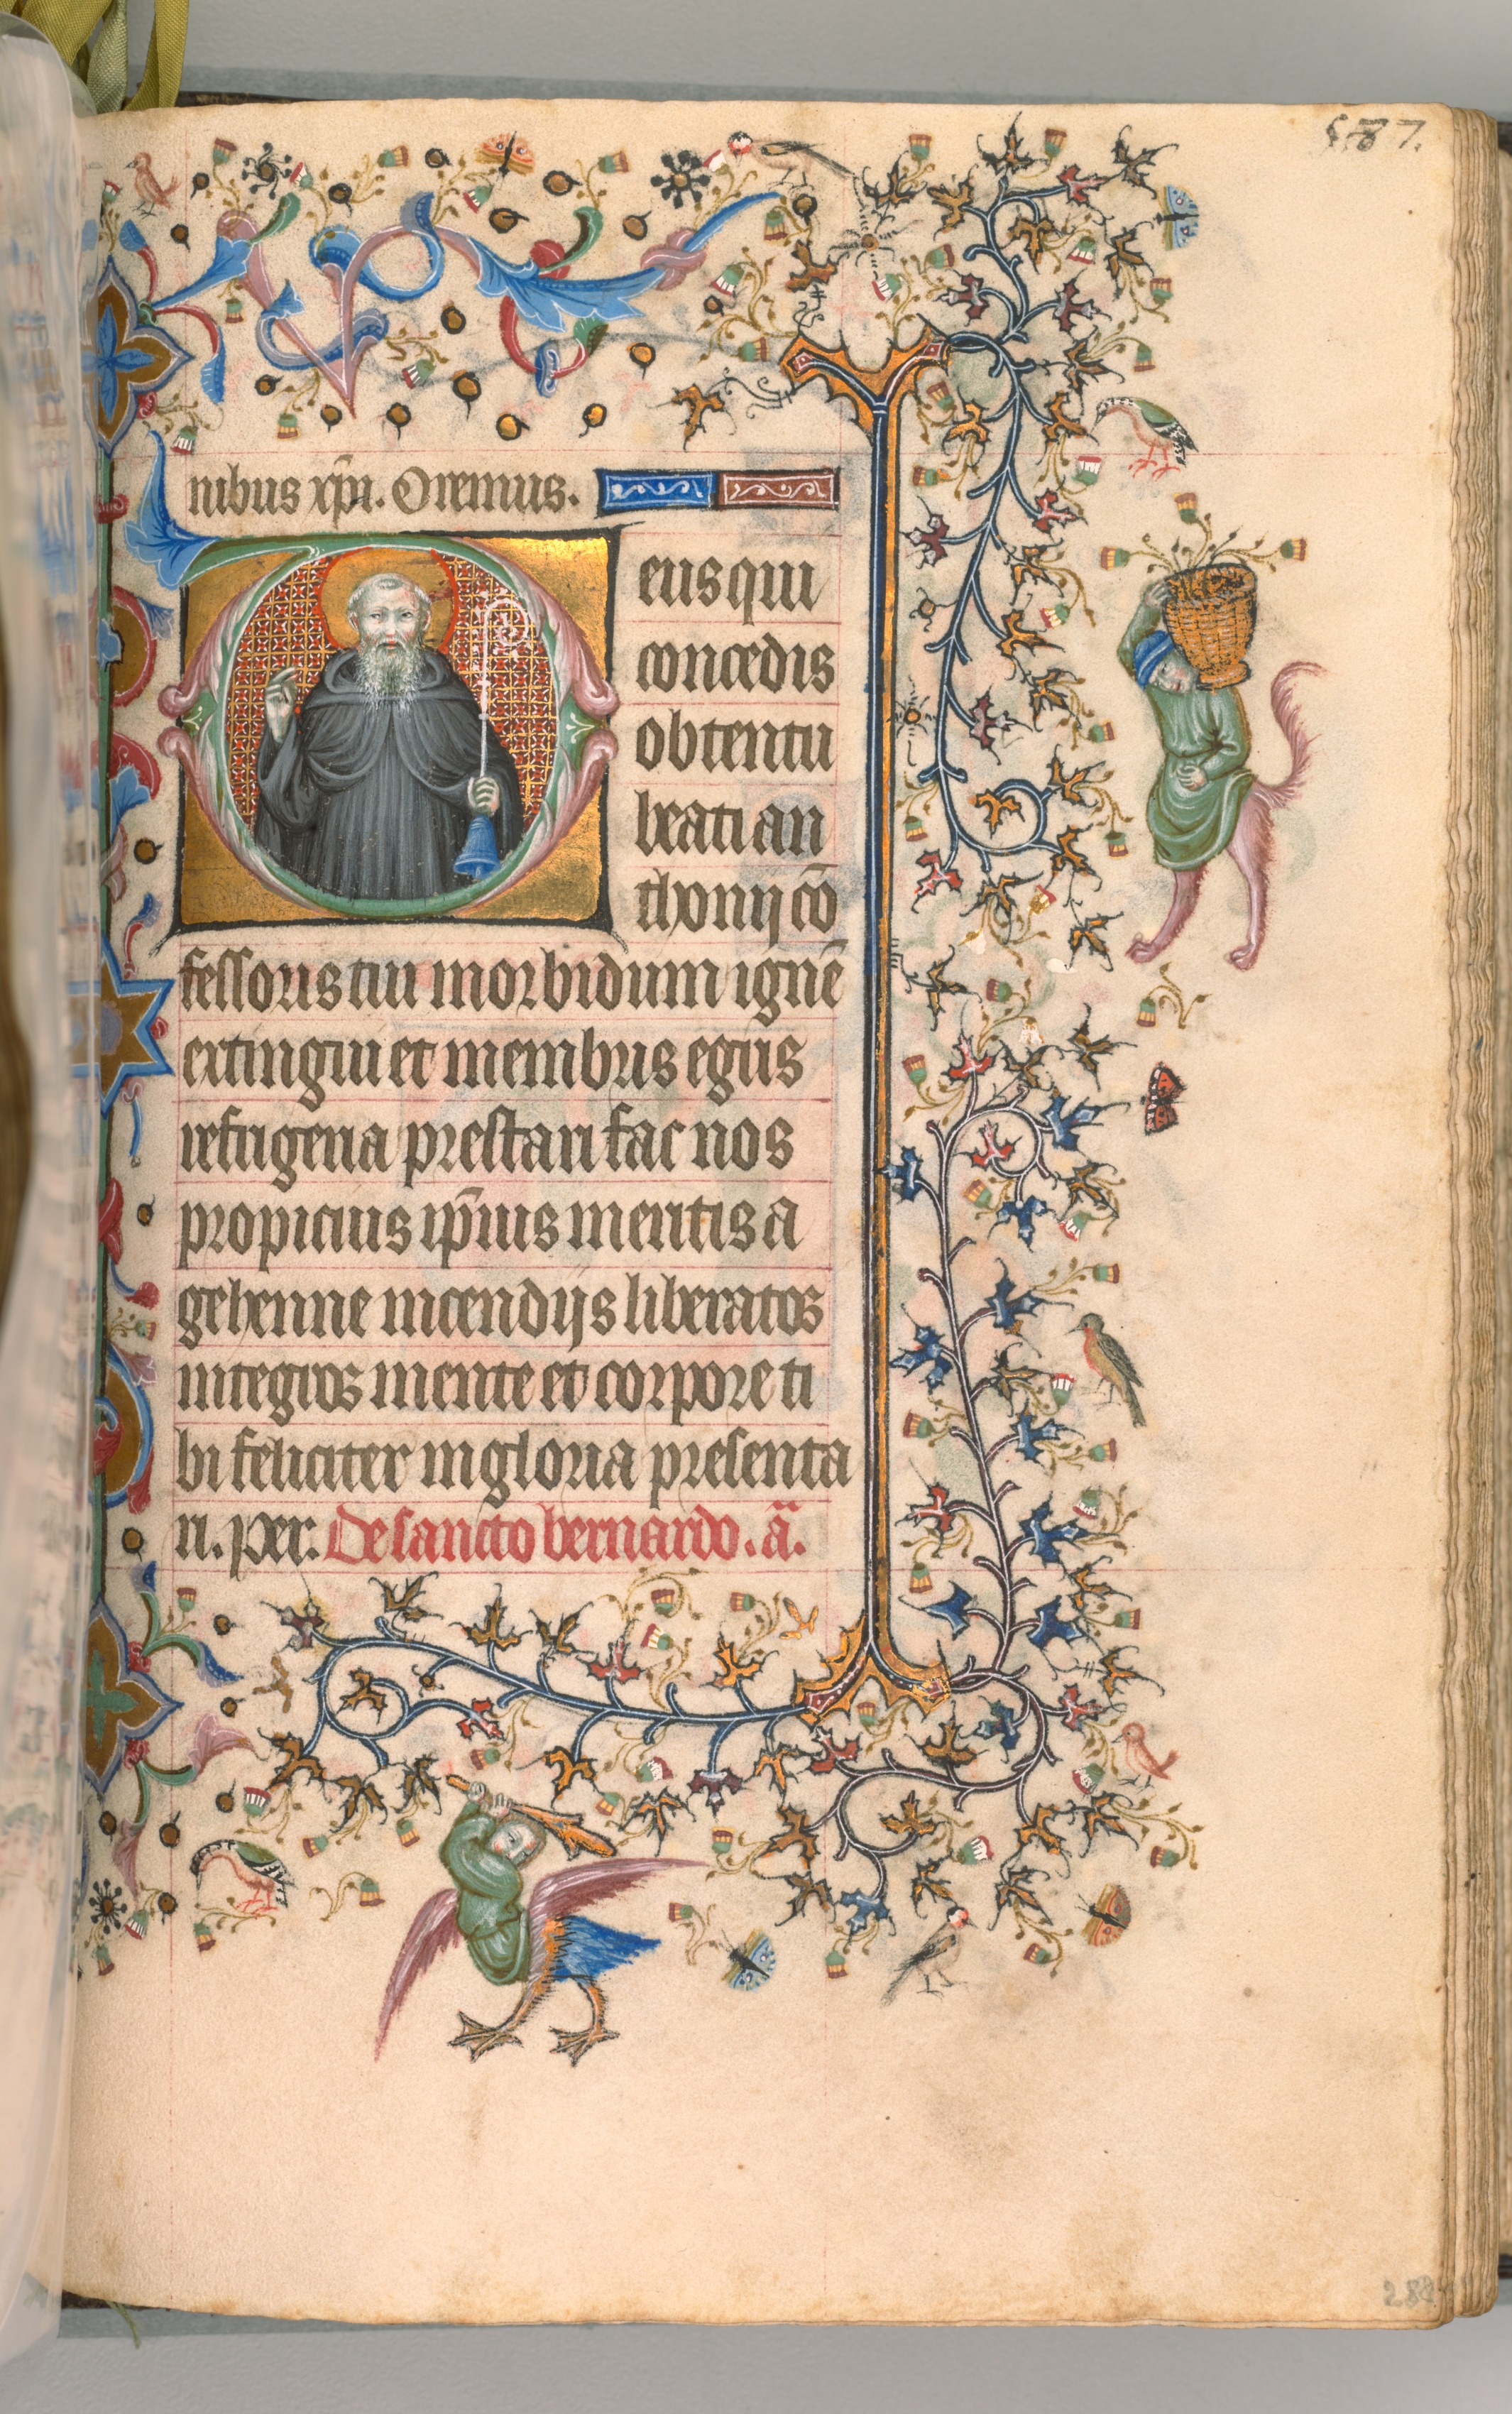 587.
nibus xp̄i. Oremus.
eus qui
concedis
obtentu
beati an
thonij cō
fessoris tui morbidum ignē
extingui et membris egris
refrigeria prestari fac nos
propicius ip̄ius meritis a
gehenne incendijs liberatos
integros mente et corpore ti
bi feliciter in gloria presenta
ri. per. De sancto bernardo. a̅.